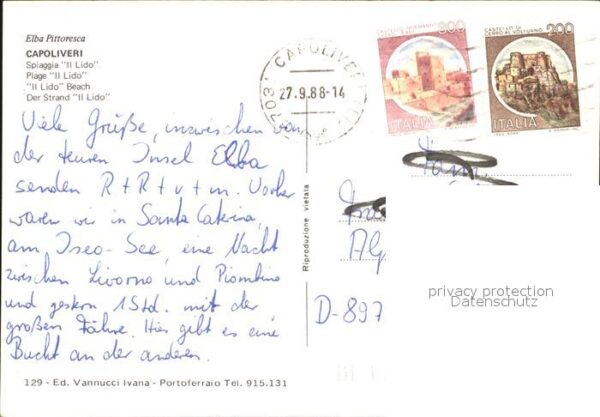 Elba Pittoresca
CAPOLIVERI
Spiaggia "Il Lido"
Plage "Il Lido"
"Il Lido" Beach
Der Strand "Il Lido"
CAPOLIVERI
27.9.88-14
300
ITALIA
CASTELLO DI
CERRO AL VOLTURNO
200
ITALIA
Viele Grüße, inzwischen von
der teuren Insel Elba
senden R+R+v+m. Vorher
waren wir in Santa Caterina,
am Iseo-See, eine Nacht
zwischen Livorno und Piombino
und gestern 1 Std. mit der
großen Fähre. Hier gibt es eine
Bucht an der anderen.
Riproduzione vietata
Fam.
D-897
privacy protection
Datenschutz
129 - Ed. Vannucci Ivana - Portoferraio Tel. 915.131